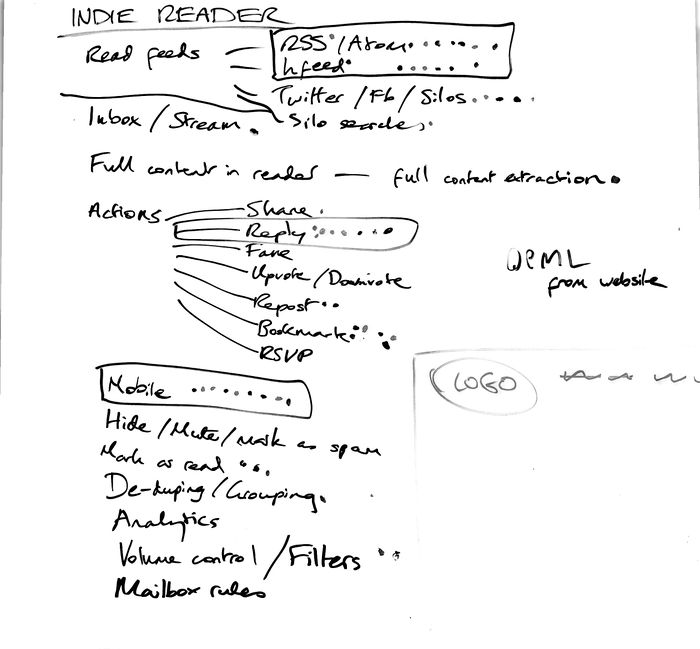 INDIE READER
Read feeds
RSS / Atom
hfeed
Twitter / Fb / Silos
Silo searches
Inbox / Stream
Full content in reader — full content extraction
Actions
Share
Reply
Fave
Upvote / Downvote
Repost
Bookmark
RSVP
OPML
from website
LOGO
Mobile
Hide / Mute / Mark as spam
Mark as read
De-duping / Grouping
Analytics
Volume control / Filters
Mailbox rules